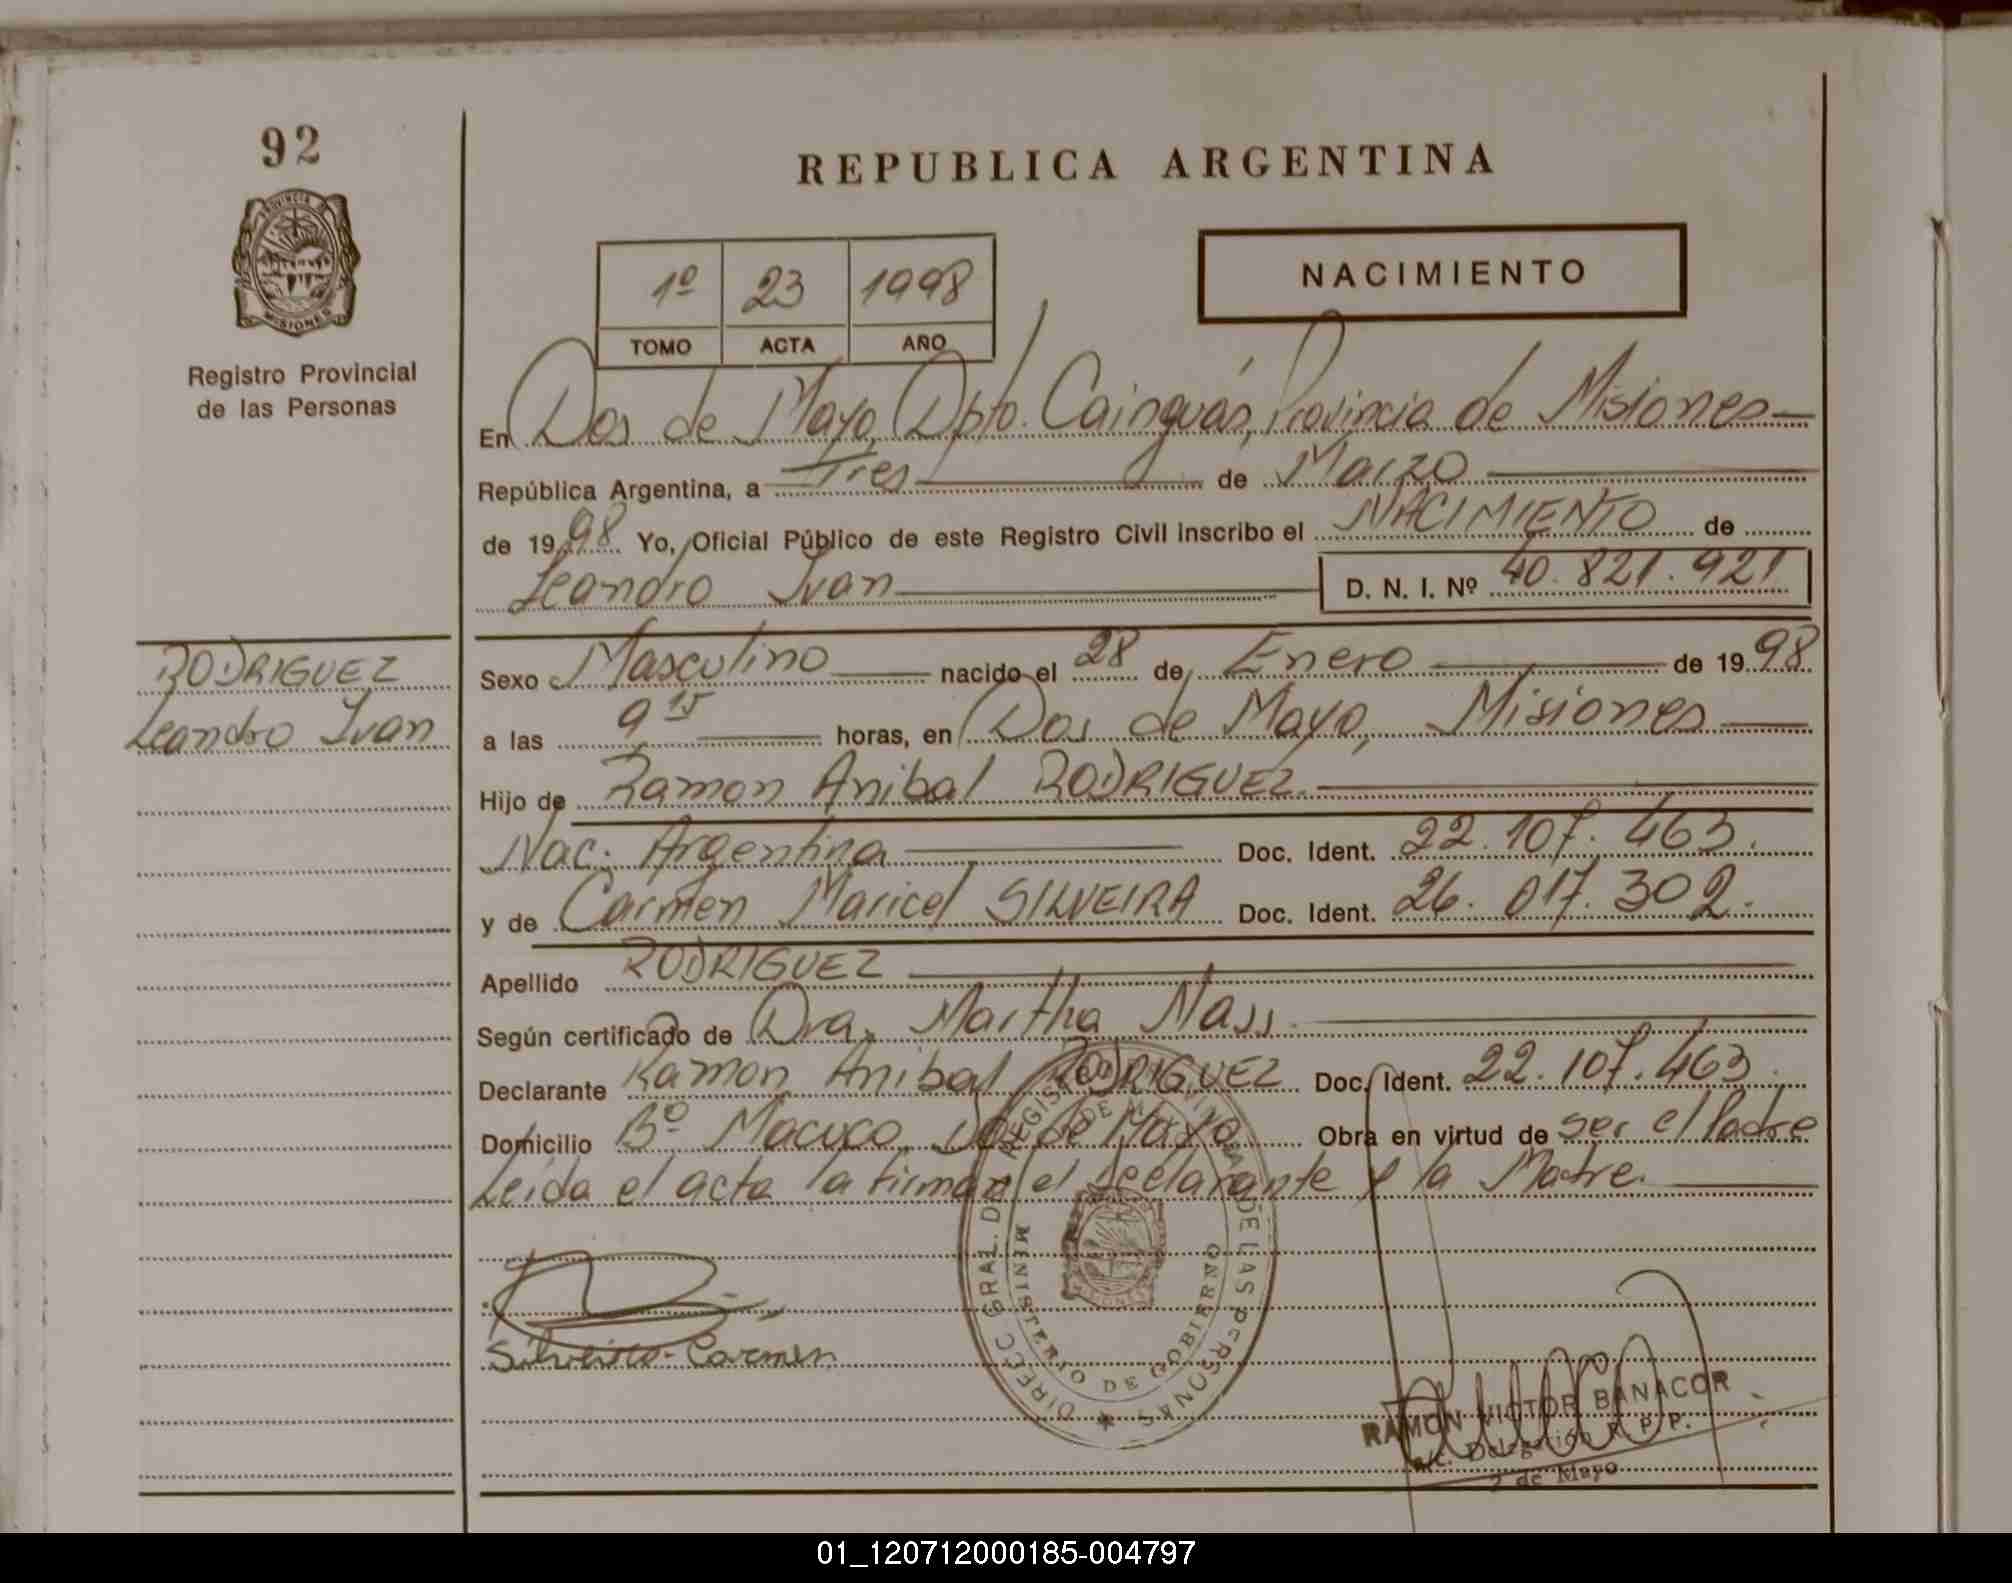 92
PROVINCIA DE
MISIONES
Registro Provincial
de las Personas
RODRIGUEZ
Leandro Ivan
REPUBLICA ARGENTINA
1º 23 1998
TOMO ACTA AÑO
NACIMIENTO
En Dos de Mayo, Dpto. Cainguás, Provincia de Misiones
República Argentina, a Tres de Marzo
de 1998 Yo, Oficial Público de este Registro Civil inscribo el NACIMIENTO de
Leandro Ivan D. N. I. Nº 40.821.921
Sexo Masculino nacido el 28 de Enero de 1998
a las 9 15 horas, en Dos de Mayo, Misiones
Hijo de Ramon Anibal RODRIGUEZ.
Nac. Argentina Doc. Ident. 22.107.463.
y de Carmen Maricel SILVEIRA Doc. Ident. 26.017.302.
Apellido RODRIGUEZ
Según certificado de Dra. Martha Mass.
Declarante Ramon Anibal RODRIGUEZ Doc. Ident. 22.107.463.
Domicilio Bº Macuco, Dos de Mayo Obra en virtud de ser el Padre
Leida el acta la firman el declarante y la Madre.
DIRECC. GRAL. DEL REGISTRO PROVINCIAL DE LAS PERSONAS
MINISTERIO DE GOBIERNO
Silveira Carmen
RAMON VICTOR BANACOR
Delegación R. P. P.
2 de Mayo
01_120712000185-004797